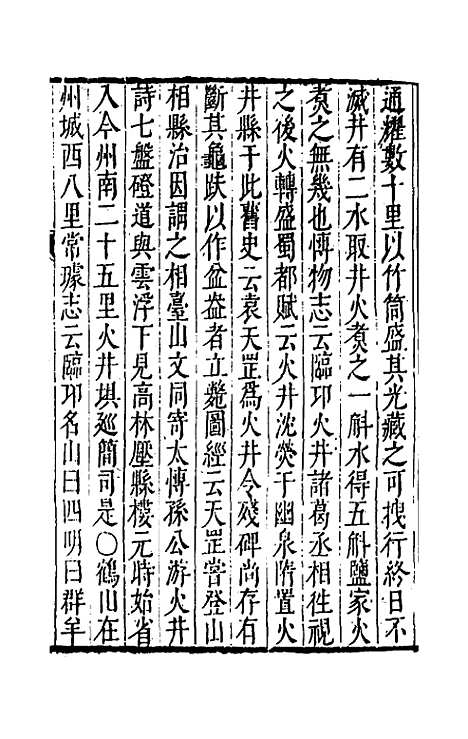 通耀數十里以竹筒盛其光藏之可拽行終日不
滅井有二水取井火煑之一斛水得五斛鹽家火
煑之無幾也博物志云臨邛火井諸葛丞相徃視
之後火轉盛蜀都賦云火井沈熒于幽泉隋置火
井縣于此舊史云袁天罡爲火井令殘碑尚存有
斷其龜趺以作盆盎者立斃圖經云天罡嘗登山
相縣治因謂之相臺山文同寄太博孫公游火井
詩七盤磴道與雲浮下見高林壓縣樓元時始省
入今州南二十五里火井垻廵簡司是○鶴山在
州城西八里常璩志云臨邛名山曰四明曰群羊